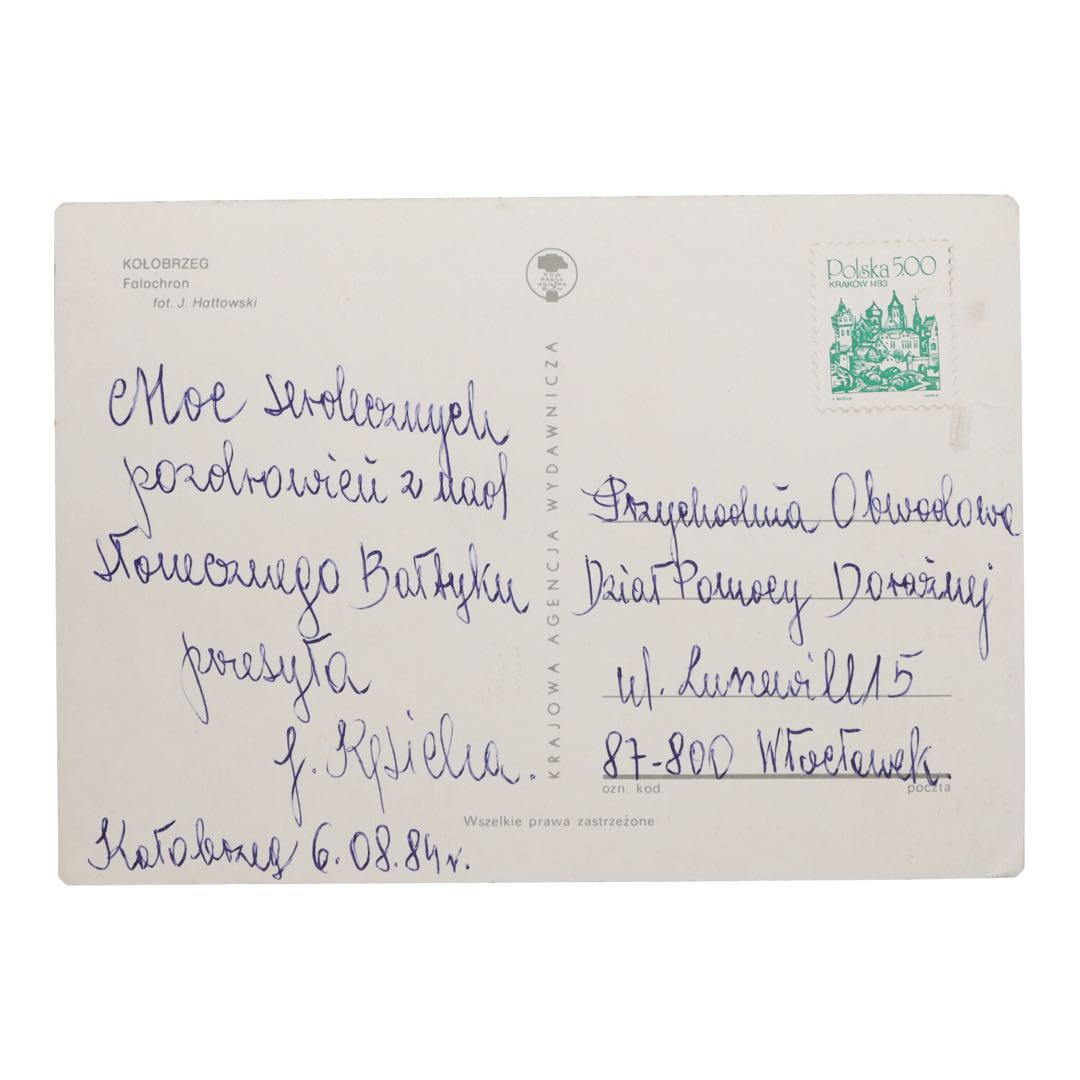 KOŁOBRZEG
Falochron
fot. J. Hattowski
Moc serdecznych
pozdrowień z nad
słonecznego Bałtyku
przesyła
J.
Kołobrzeg 6.08.84 r.
KRAJOWA AGENCJA WYDAWNICZA
RSW
PRASA
KSIĄŻKA
RUCH
Polska 5.00
KRAKÓW 1493
Przychodnia Obwodowa
Dział Pomocy Doraźnej
ul. Lunewill 15
87-800 Włocławek
ozn. kod poczta
Wszelkie prawa zastrzeżone